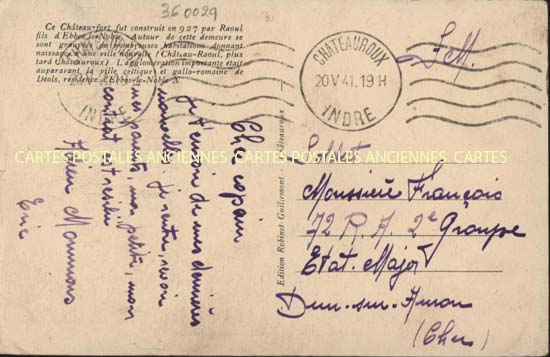 360029
Ce Château-fort fut construit en 927 par Raoul
fils d'Ebbes-le-Noble. Autour de cette demeure se
sont groupées de nombreuses habitations donnant
naissance à une ville nouvelle (Château-Raoul, plus
tard Châteauroux). L'agglomération importante était
auparavant la ville celtique et gallo-romaine de
Déols, résidence d'Ebbes-le-Noble.
CHATEAUROUX
20 V 41. 19 H
INDRE
F.M.
Cher copain
Je t'envoie de mes dernières
nouvelles, je
mes parents, mon petit, mon
contrat est résilié
Eric
Edition Robinet-Guillemont - Châteauroux
CARTES POSTALES ANCIENNES CARTES POSTALES ANCIENNES CARTES
Soldat
Monsieur François
72 R. A. 2e Groupe
Etat Major
Dun-sur-Auron
(Cher)